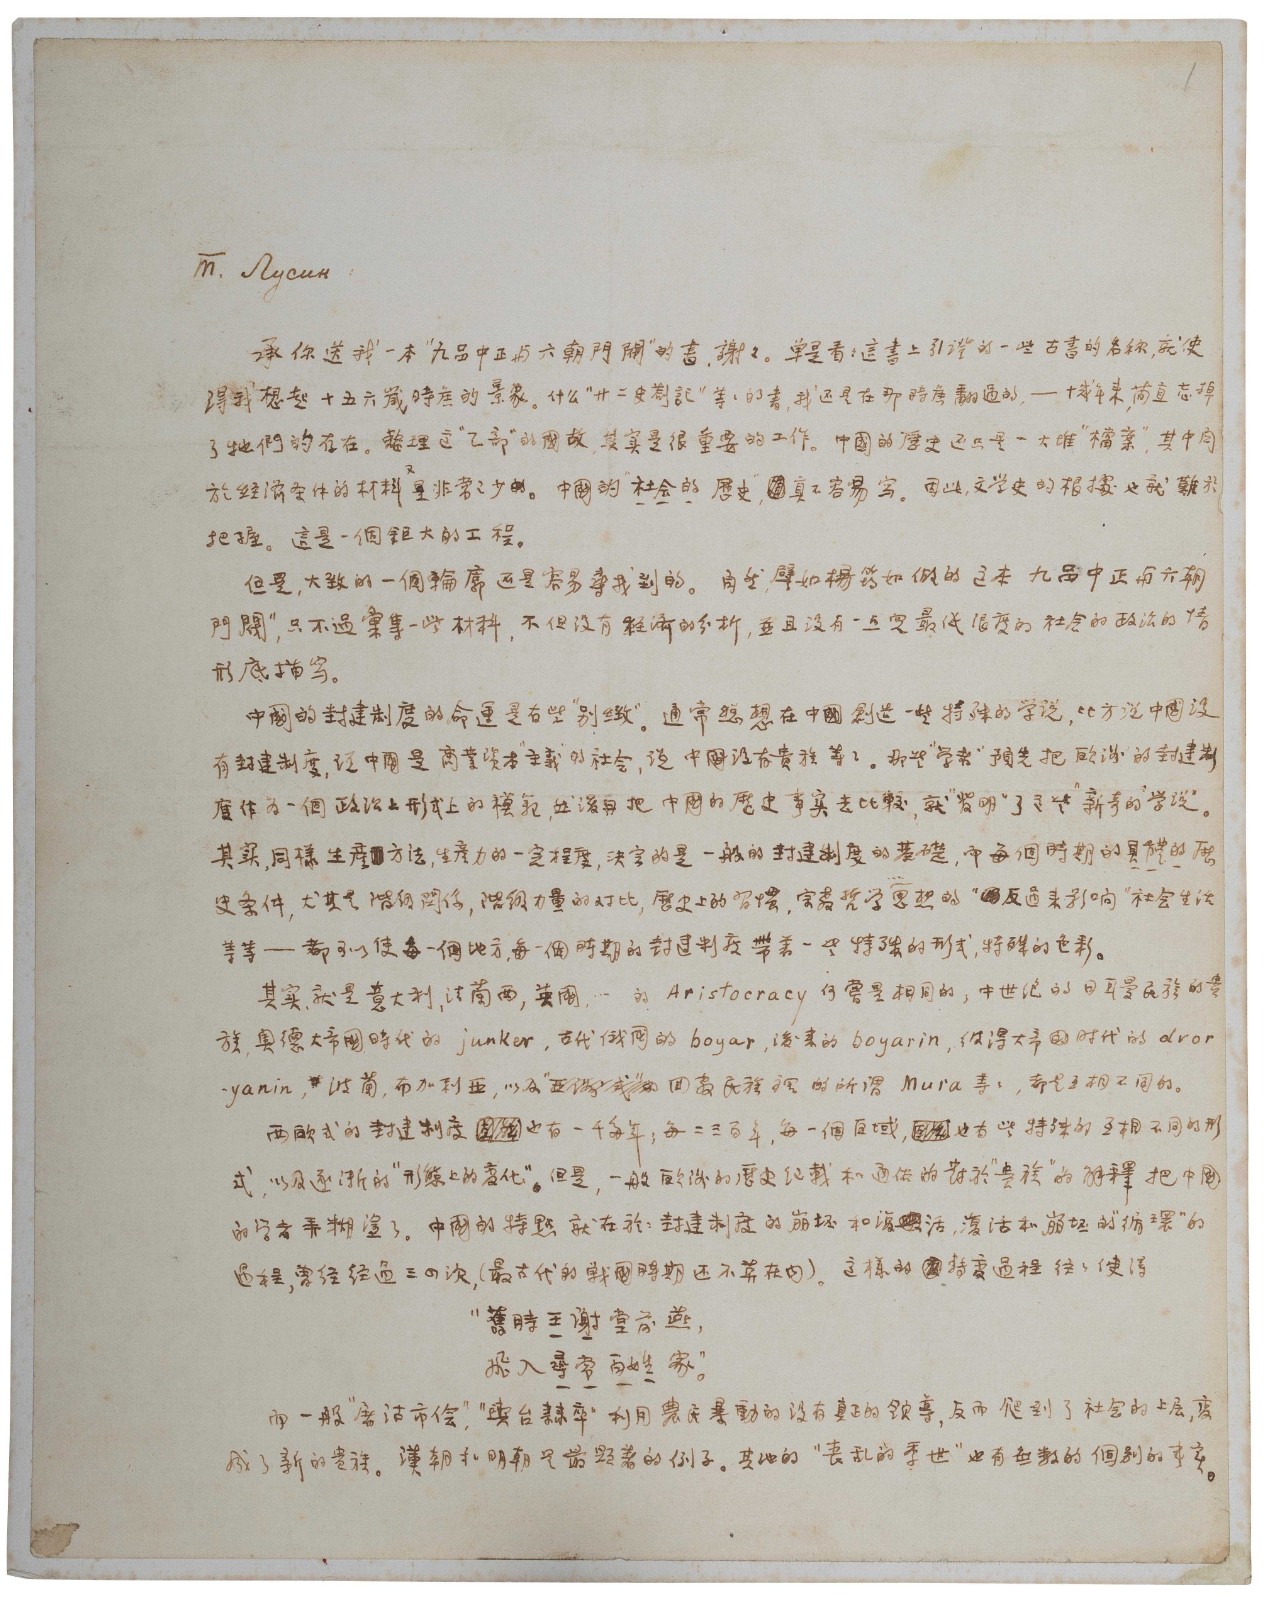 1
Т. Лусин:
承你送我一本"九品中正与六朝門閥"的書,謝々。單是看々這書上引證的一些古書的名称,就使
得我想起十五六歲時候的景象。什么"廿二史劄記"等々的書,我还是在那時候翻过的,—十幾年来,簡直忘掉
了牠們的存在。整理这"乙部"的國故,其实是很重要的工作。中國的歷史还只是一大堆"檔案",其中関
於經濟条件的材料又是非常之少的。中國的"社会的歷史",真不容易写。因此,文学史的根據也就難於
把握。這是一個鉅大的工程。
但是,大致的一個輪廓还是容易尋找到的。自然,譬如楊筠如做的这本九品中正与六朝
門閥",只不過彙集一些材料,不但没有經濟的分析,並且没有一点突最低限度的社会的政治的情
形底描写。
中國的封建制度的命運是有些"別緻"。通常總想在中國創造一些特殊的学说,比方说中國没
有封建制度,说中國是商業資本"主義"的社会,说中國没有貴族等々。那些"学者"預先把欧洲的封建制
度作为一個政治上形式上的模範,然後再把中國的歷史事实去比較,就"發明"了这些"新奇的"学说"。
其实,同樣生產方法,生產力的一定程度,決定的是一般的封建制度的基礎,而每個時期的具體的歷
史条件,尤其是階級関係,階級力量的对比,歷史上的習慣,宗教哲学思想的"反过来影响"社会生活
等等——都可以使每一個地方,每一個時期的封建制度帶着一些特殊的形式,特殊的色彩。
其实,就是意大利,法蘭西,英國……的 Aristocracy 何嘗是相同的;中世纪的日耳曼民族的貴
族,奥德大帝國時代的 junker,古代俄国的 boyar,後来的 boyarin,彼得大帝国时代的 dvor
-yanin,波蘭,布加利亚,以及回教民族裡的所謂 Mura 等々,都是互相不同的。
西欧式的封建制度也有一千多年;每二三百年,每一個区域,也有些特殊的互相不同的形
式,以及逐漸的"形態上的變化"。但是,一般欧洲的歷史纪載和通俗的对於"貴族"的解釋把中國
的学者弄糊塗了。中國的特點就在於:封建制度的崩坏和復活,復活和崩坏的"循環"的
過程,曾经经過三四次,(最古代的戰國時期还不算在内)。这樣的转变過程往々使得
"舊時王謝堂前燕,
飛入尋常百姓家"。
而一般"屠沽市侩","輿台隸卒"利用農民暴動的没有真正的領導,反而爬到了社会的上层,变
成了新的貴族。漢朝和明朝是最顯著的例子。其他的"喪乱的季世"也有無数的個別的事实。